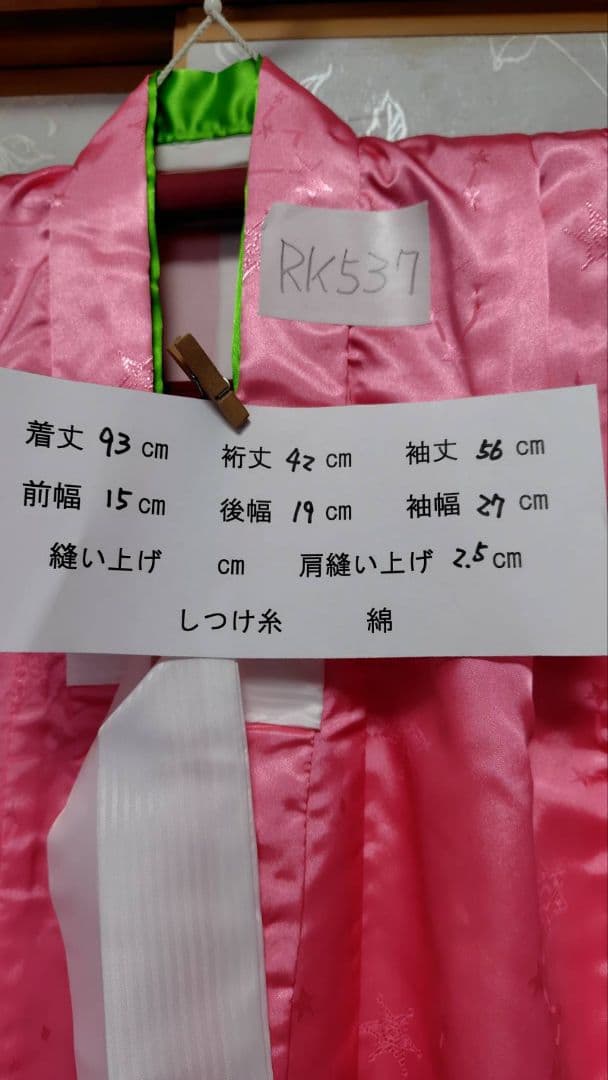 RK537
着丈 93 cm 裄丈 42 cm 袖丈 56 cm
前幅 15 cm 後幅 19 cm 袖幅 27 cm
縫い上げ cm 肩縫い上げ 2.5 cm
しつけ糸 綿